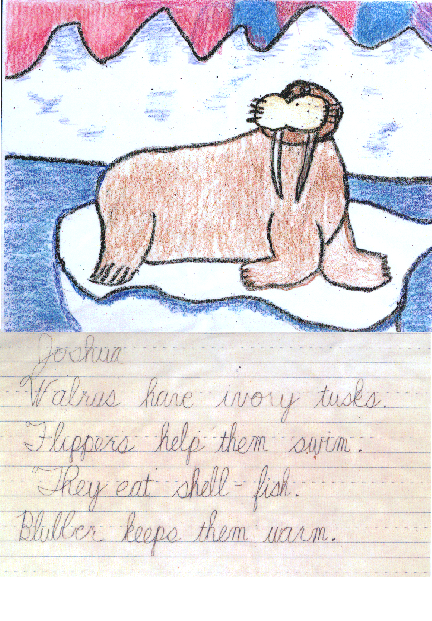 Joshua
Walrus have ivory tusks.
Flippers help them swim.
They eat shell-fish.
Blubber keeps them warm.